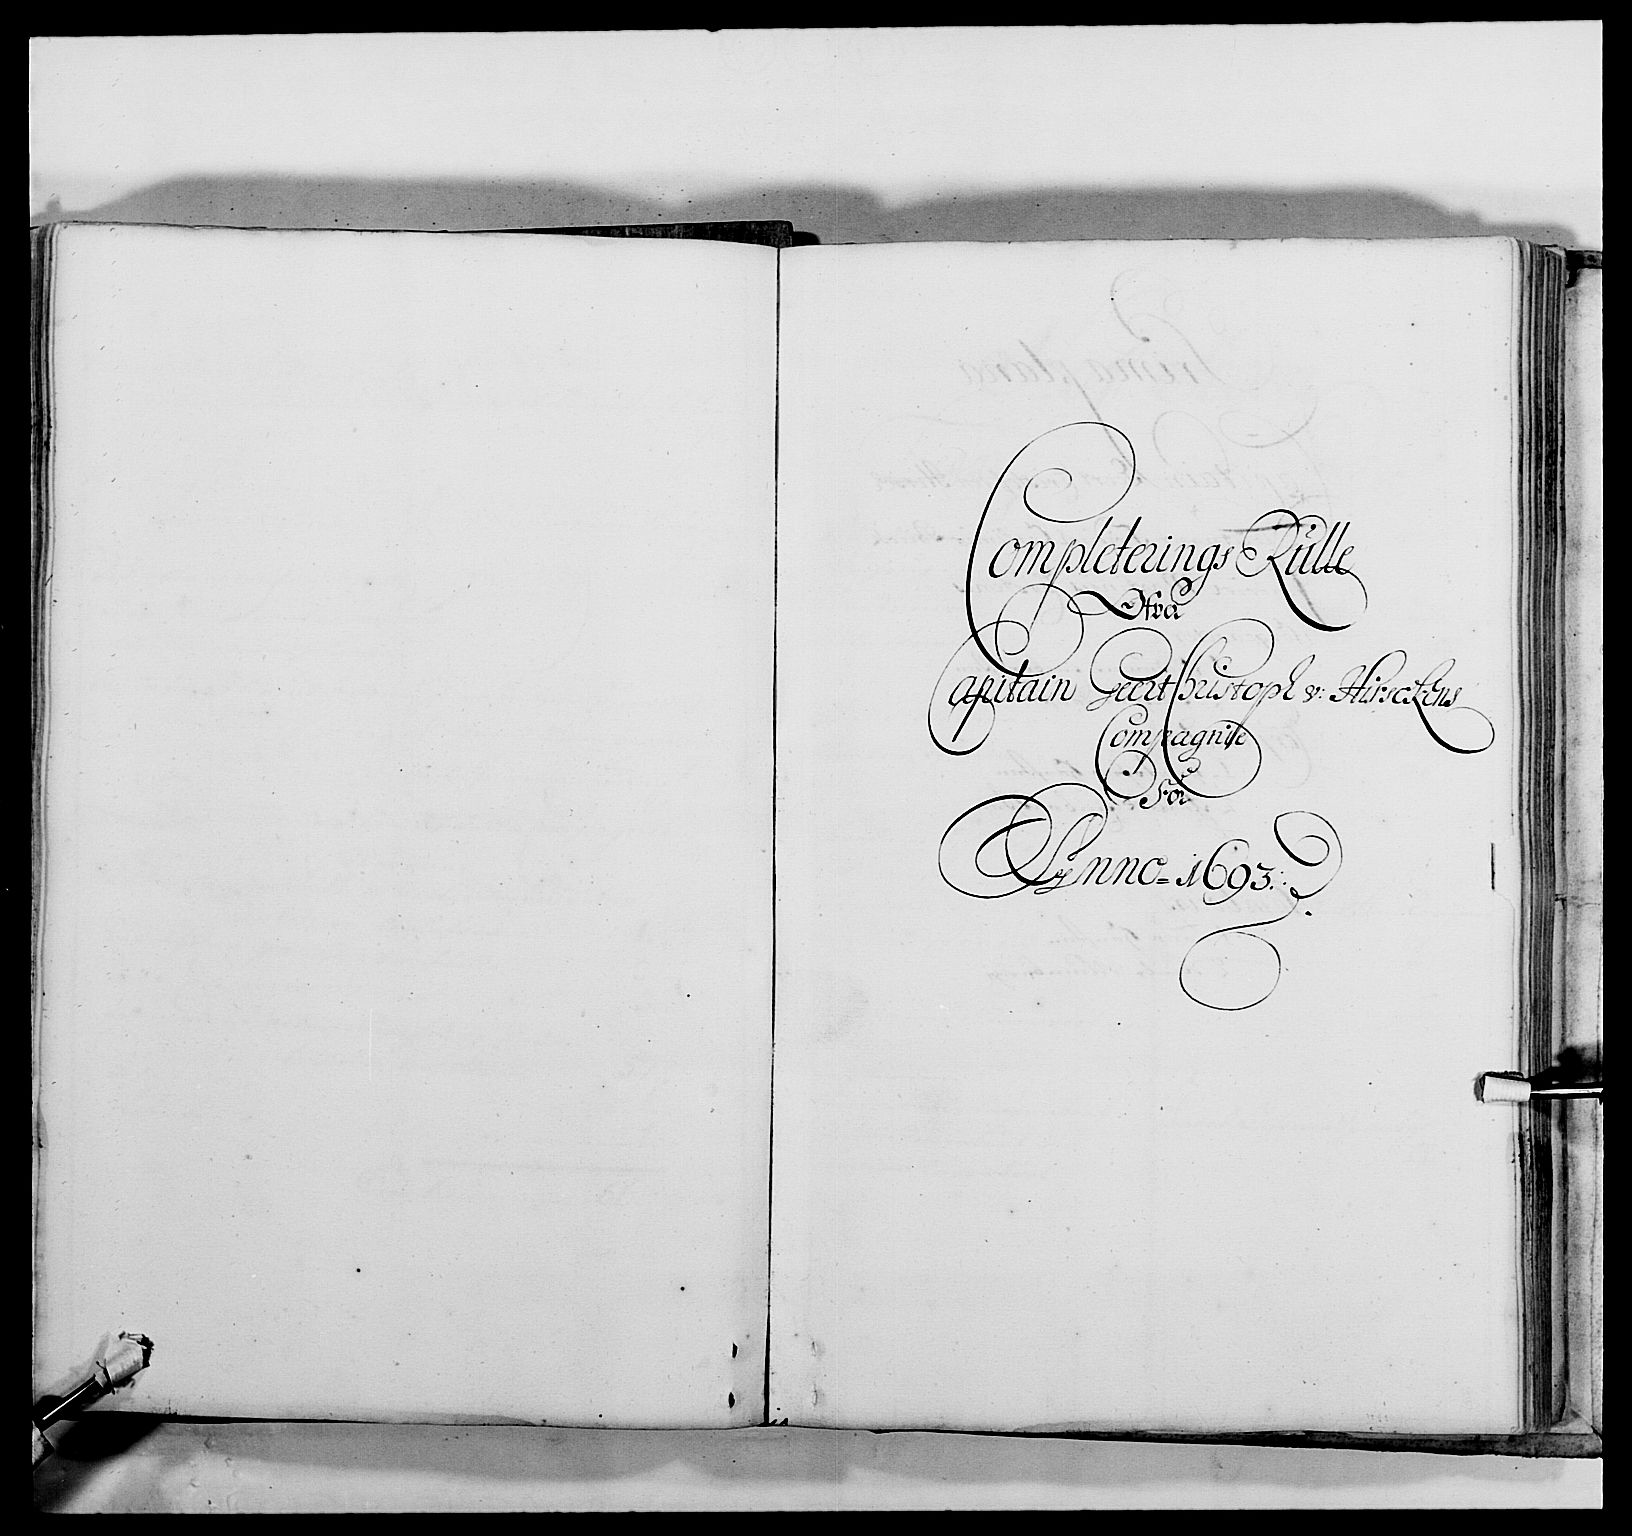 Completerings Rulle
Öfva
Capitain Geert Christoph v: Hirschens
Compagnie
För
Anno 1693